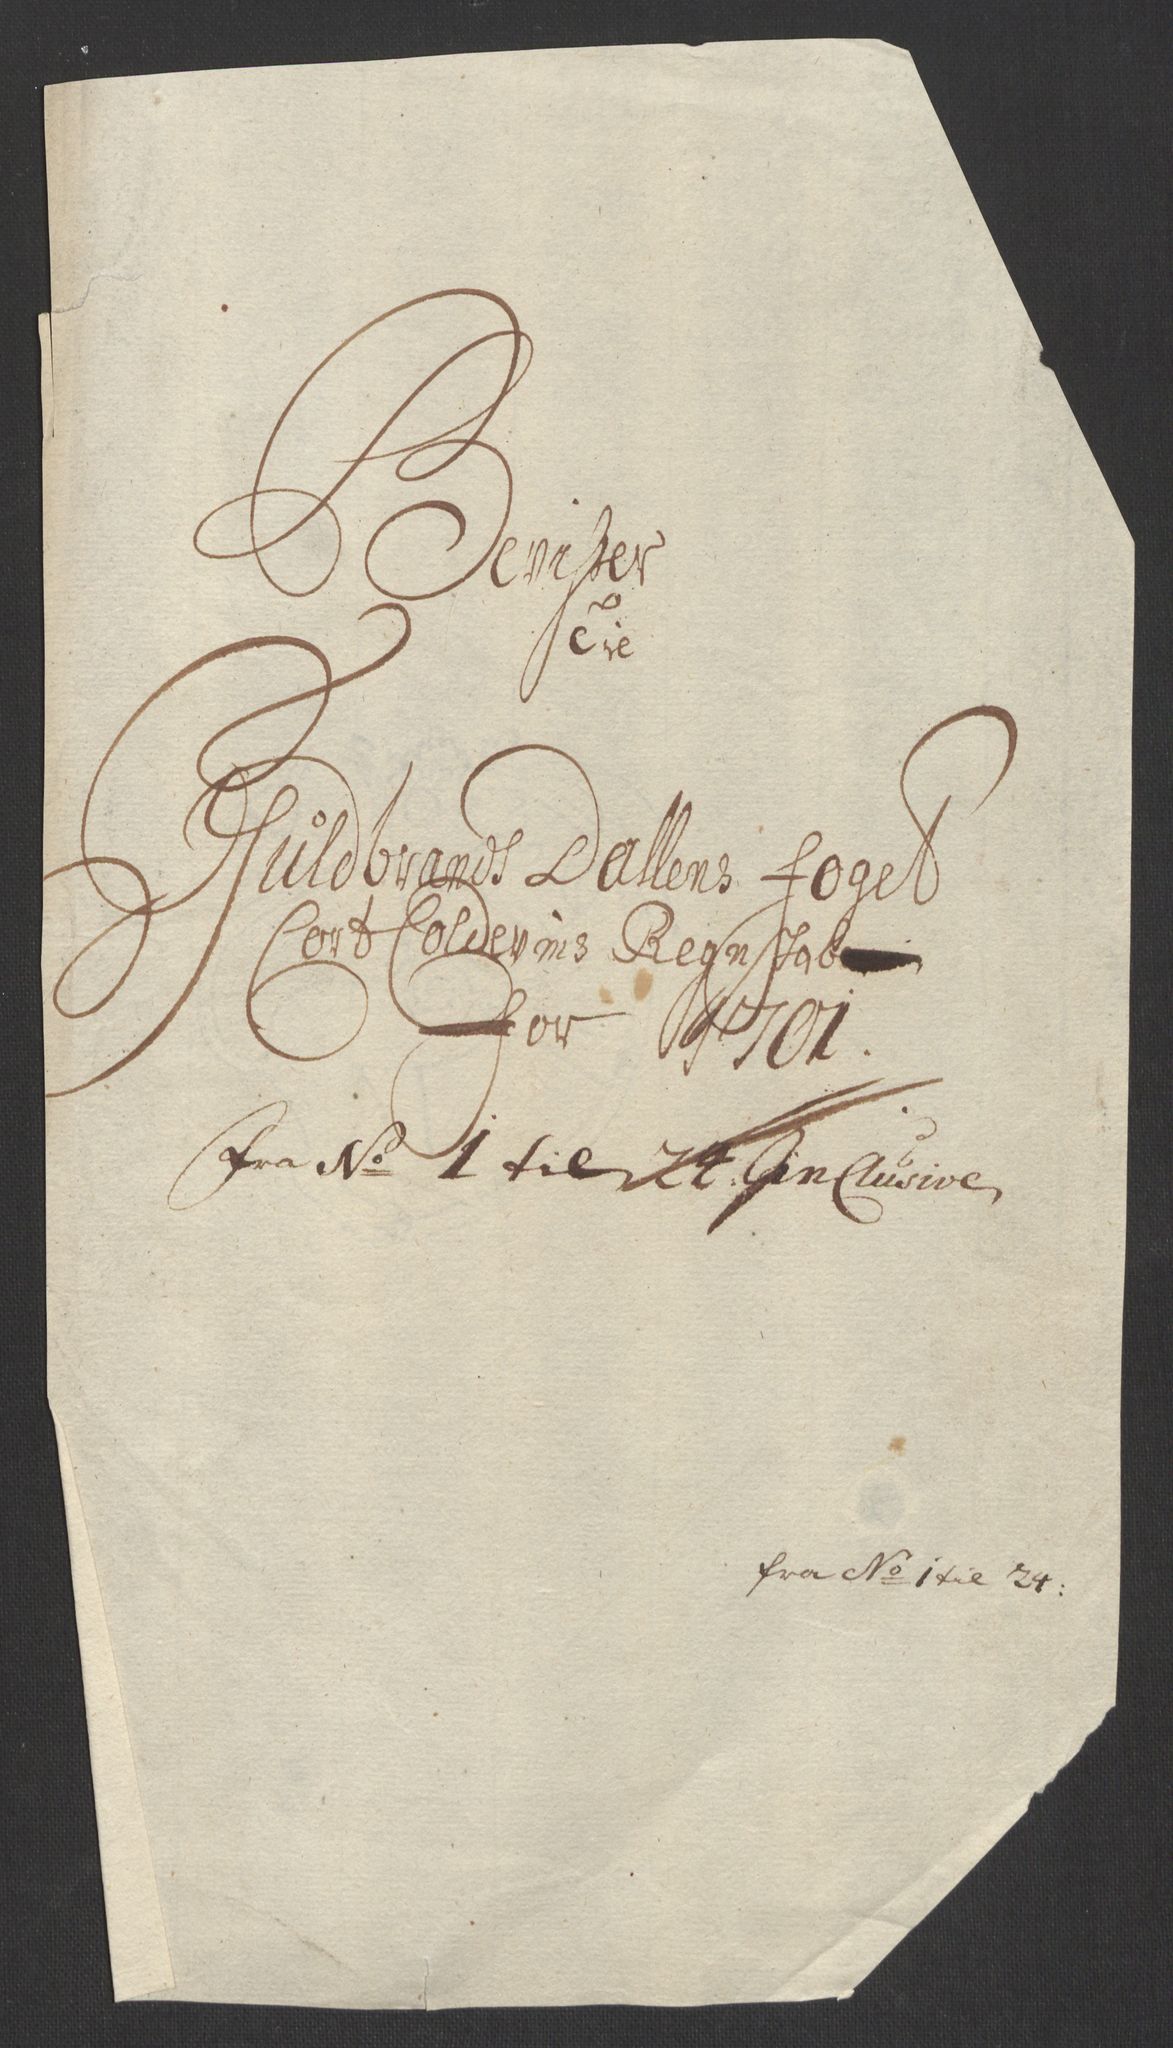 Bevißer
til
Guldbrands Dallens foget
Cort Coldevins Regnskab
for 1701.
fra No 1 til 24. Inclusive
fra No 1 til 24: